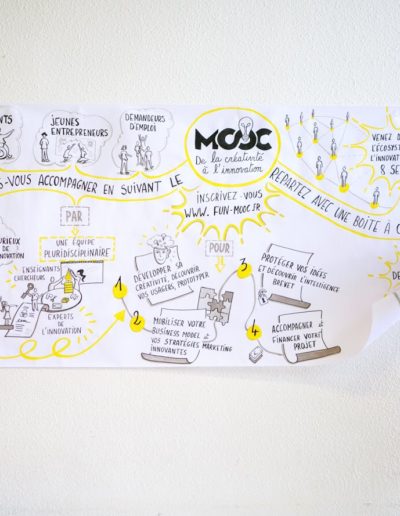 JEUNES
ENTREPRENEURS
DEMANDEURS
D'EMPLOI
MOOC
De la créativité
à l'innovation
VENEZ D
L'ÉCOSYS
L'INNOVAT
& SE
S-VOUS ACCOMPAGNER EN SUIVANT LE
INSCRIVEZ-VOUS
WWW.FUN-MOOC.FR
REPARTEZ AVEC UNE BOÎTE À
PAR
UNE ÉQUIPE
PLURIDISCIPLINAIRE
ENSEIGNANTS
CHERCHEURS
EXPERTS DE
L'INNOVATION
POUR
1
DÉVELOPPER SA
CRÉATIVITÉ, DÉCOUVRIR
VOS USAGERS, PROTOTYPER
2
MOBILISER VOTRE
BUSINESS MODEL &
VOS STRATÉGIES MARKETING
INNOVANTES
3
PROTÉGER VOS IDÉES
ET DÉCOUVRIR L'INTELLIGENCE
BREVET
4
ACCOMPAGNER &
FINANCER VOTRE
PROJET